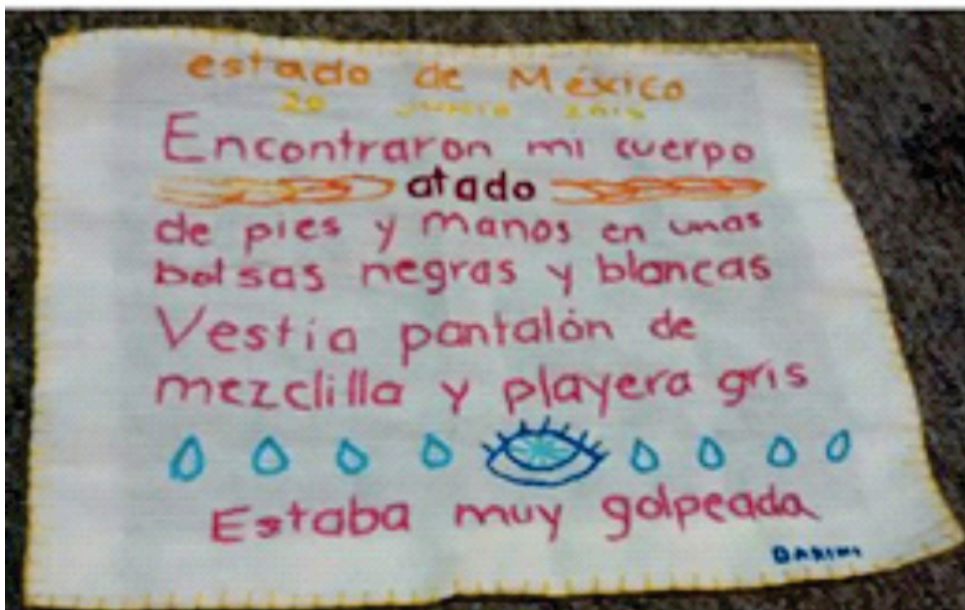 estado de México
20
Encontraron mi cuerpo
atado
de pies y manos en unas
bolsas negras y blancas
Vestía pantalón de
mezclilla y playera gris
Estaba muy golpeada